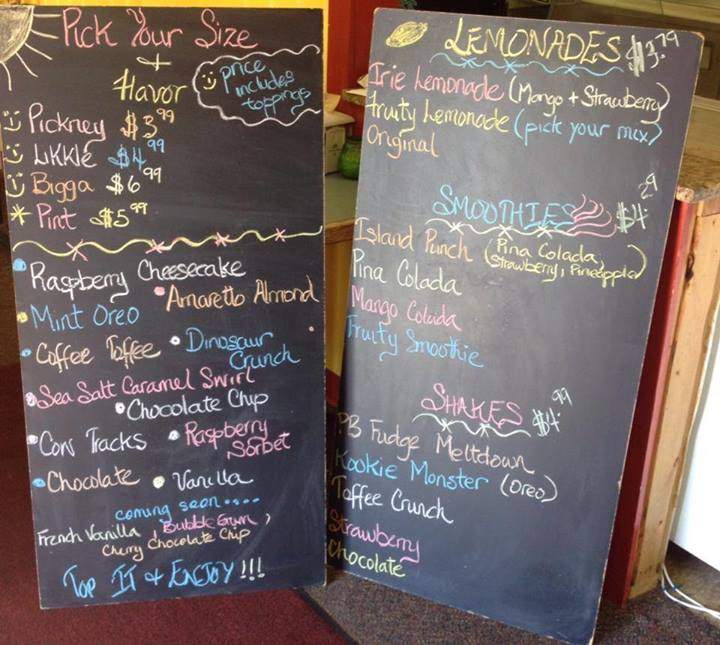 Pick Your Size
+
Flavor
price
includes
toppings
Pickney $3.99
Likkle $4.99
Bigga $6.99
Pint $5.99
Raspberry Cheesecake
Amaretto Almond
Mint Oreo
Coffee Toffee
Dinosaur
Crunch
Sea Salt Caramel Swirl
Chocolate Chip
Cow Tracks
Raspberry
Sorbet
Chocolate
Vanilla
coming soon....
French Vanilla, Bubble Gum,
Cherry Chocolate Chip
Top It & ENJOY!!!
LEMONADES $3.79
Irie Lemonade (Mango + Strawberry)
Fruity Lemonade (pick your mix)
Original
SMOOTHIES $4.29
Island Punch (Pina Colada,
Strawberry, Pineapple)
Pina Colada
Mango Colada
Fruity Smoothie
SHAKES $4.99
PB Fudge Meltdown
Kookie Monster (Oreo)
Toffee Crunch
Strawberry
Chocolate